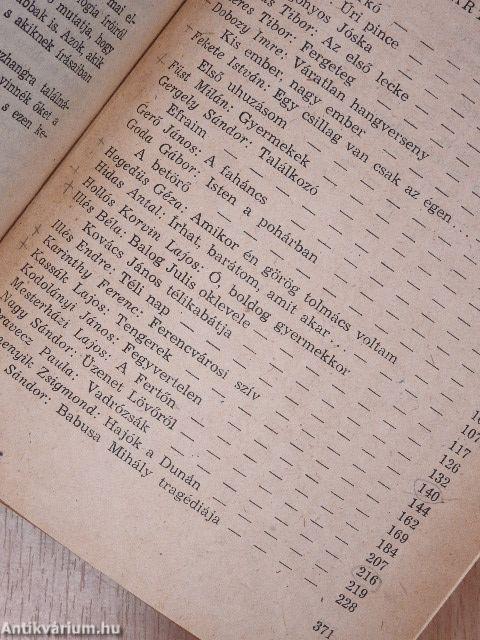 mai el-
logia íróiról
mutatja, hogy
abbak is. Azok akik
akiknek írásaiban
zhangra találná-
yinnék őket a
s ezen ke-
Úri pince
onyos Jóska
Tibor: Az első lecke
Tibor: Fergeteg
Dobozy Imre: Váratlan hangverseny
Kis ember nagy ember
Fekete István: Egy csillag van csak az égen...
Első uhuzásom
Füst Milán: Gyermekek
Gergely Sándor: Találkozó
Efraim
Gerő János: A faháncs
Goda Gábor: Isten a pohárban
A betörő
Hegedüs Géza: Amikor én görög tolmács voltam
Hidas Antal: Írhat, barátom, amit akar
Hollós Korvin Lajos: Ó, boldog gyermekkor
Illés Béla: Balog Julis oklevele
Kovács János télikabátja
Illés Endre: Téli nap
Karinthy Ferenc: Ferencvárosi szív
Kassák Lajos: Tengerek
Kodolányi János: Fegyvertelen
Mesterházi Lajos: A Fertőn
Nagy Sándor: Üzenet Lövőről
Paula: Vadrózsák
Zsigmond: Hajók a Dunán
Sándor: Babusa Mihály tragédiája
107
117
126
132
140
144
162
169
184
207
216
219
228
371
Antikvárium.hu